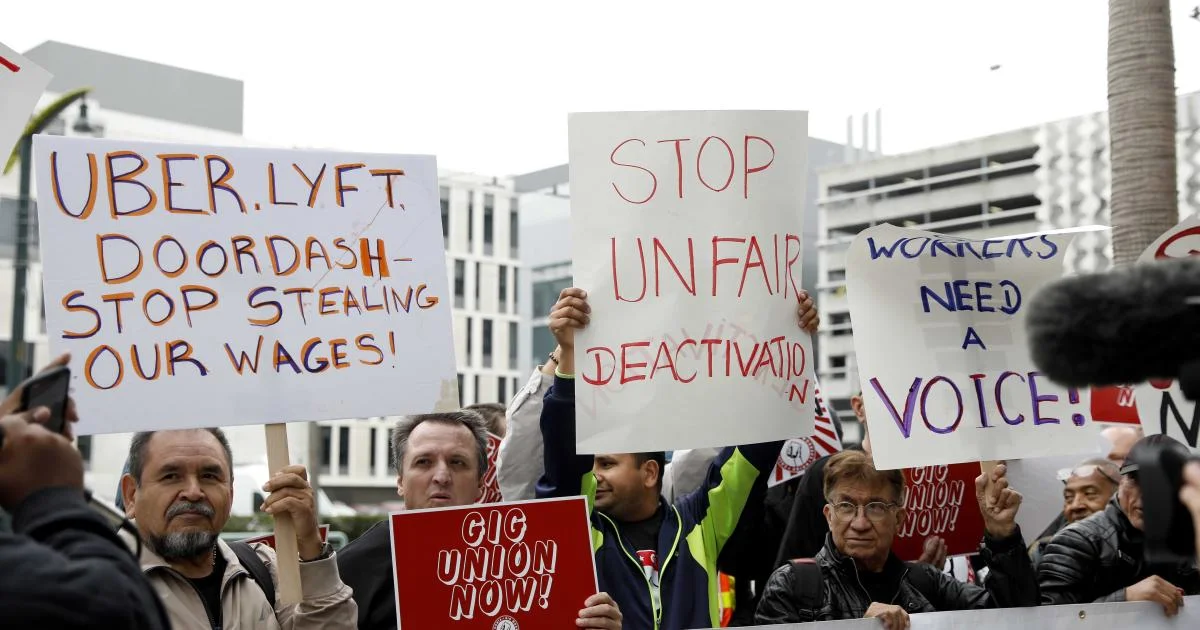 UBER. LYFT.
DOORDASH-
STOP STEALING
OUR WAGES!
STOP
UNFAIR
DEACTIVATION
WORKERS
NEED
A
VOICE!
GIG
UNION
NOW!
GIG
UNION
NOW!